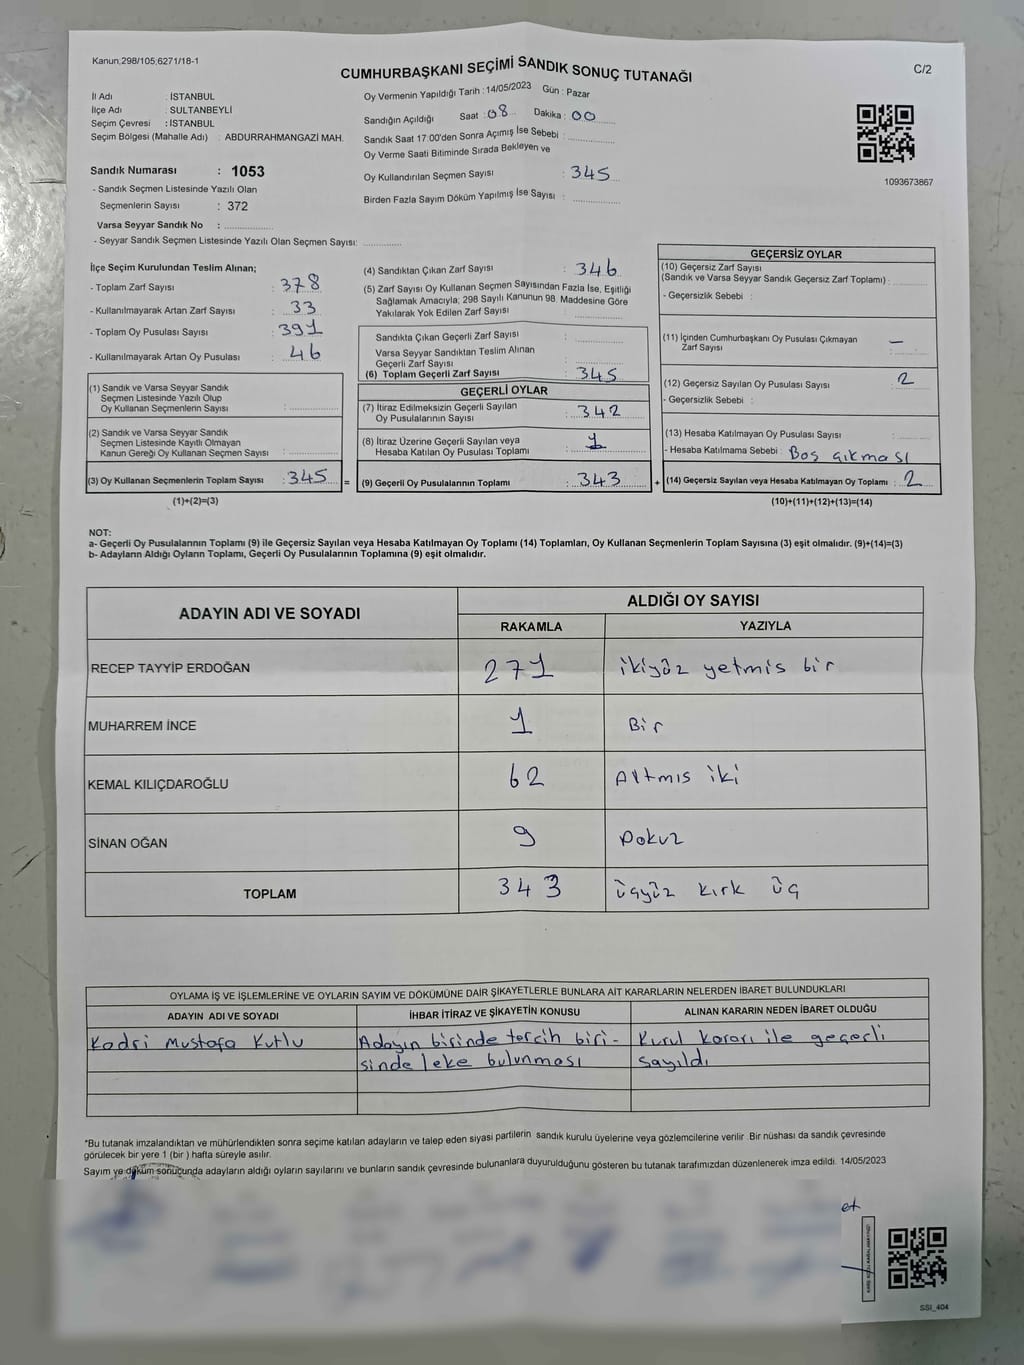 Kanun,298/105,6271/18-1
CUMHURBAŞKANI SEÇİMİ SANDIK SONUÇ TUTANAĞI
C/2
İl Adı : İSTANBUL
İlçe Adı : SULTANBEYLİ
Seçim Çevresi : İSTANBUL
Seçim Bölgesi (Mahalle Adı) : ABDURRAHMANGAZİ MAH.
Oy Vermenin Yapıldığı Tarih : 14/05/2023 Gün : Pazar
Sandığın Açıldığı Saat : 08 Dakika : 00
Sandık Saat 17:00'den Sonra Açımış İse Sebebi :
Oy Verme Saati Bitiminde Sırada Bekleyen ve
Oy Kullandırılan Seçmen Sayısı : 345
Birden Fazla Sayım Döküm Yapılmış İse Sayısı :
1093673867
Sandık Numarası : 1053
- Sandık Seçmen Listesinde Yazılı Olan
Seçmenlerin Sayısı : 372
Varsa Seyyar Sandık No :
- Seyyar Sandık Seçmen Listesinde Yazılı Olan Seçmen Sayısı:
İlçe Seçim Kurulundan Teslim Alınan;
- Toplam Zarf Sayısı : 378
- Kullanılmayarak Artan Zarf Sayısı : 33
- Toplam Oy Pusulası Sayısı : 391
- Kullanılmayarak Artan Oy Pusulası : 46
(1) Sandık ve Varsa Seyyar Sandık
Seçmen Listesinde Yazılı Olup
Oy Kullanan Seçmenlerin Sayısı :
(2) Sandık ve Varsa Seyyar Sandık
Seçmen Listesinde Kayıtlı Olmayan
Kanun Gereği Oy Kullanan Seçmen Sayısı :
(3) Oy Kullanan Seçmenlerin Toplam Sayısı : 345 =
(1)+(2)=(3)
(4) Sandıktan Çıkan Zarf Sayısı : 346
(5) Zarf Sayısı Oy Kullanan Seçmen Sayısından Fazla İse, Eşitliği
Sağlamak Amacıyla; 298 Sayılı Kanunun 98. Maddesine Göre
Yakılarak Yok Edilen Zarf Sayısı :
Sandıkta Çıkan Geçerli Zarf Sayısı :
Varsa Seyyar Sandıktan Teslim Alınan
Geçerli Zarf Sayısı :
(6) Toplam Geçerli Zarf Sayısı : 345
GEÇERLİ OYLAR
(7) İtiraz Edilmeksizin Geçerli Sayılan
Oy Pusulalarının Sayısı : 342
(8) İtiraz Üzerine Geçerli Sayılan veya
Hesaba Katılan Oy Pusulası Toplamı : 1
(9) Geçerli Oy Pusulalarının Toplamı : 343 +
GEÇERSİZ OYLAR
(10) Geçersiz Zarf Sayısı
(Sandık ve Varsa Seyyar Sandık Geçersiz Zarf Toplamı) :
- Geçersizlik Sebebi :
(11) İçinden Cumhurbaşkanı Oy Pusulası Çıkmayan
Zarf Sayısı : –
(12) Geçersiz Sayılan Oy Pusulası Sayısı : 2
- Geçersizlik Sebebi :
(13) Hesaba Katılmayan Oy Pusulası Sayısı :
- Hesaba Katılmama Sebebi : Boş çıkması
(14) Geçersiz Sayılan veya Hesaba Katılmayan Oy Toplamı : 2
(10)+(11)+(12)+(13)=(14)
NOT:
a- Geçerli Oy Pusulalarının Toplamı (9) ile Geçersiz Sayılan veya Hesaba Katılmayan Oy Toplamı (14) Toplamları, Oy Kullanan Seçmenlerin Toplam Sayısına (3) eşit olmalıdır. (9)+(14)=(3)
b- Adayların Aldığı Oyların Toplamı, Geçerli Oy Pusulalarının Toplamına (9) eşit olmalıdır.
ADAYIN ADI VE SOYADI ALDIĞI OY SAYISI
RAKAMLA YAZIYLA
RECEP TAYYİP ERDOĞAN 271 ikiyüz yetmis bir
MUHARREM İNCE 1 Bir
KEMAL KILIÇDAROĞLU 62 Altmıs iki
SİNAN OĞAN 9 Dokuz
TOPLAM 343 üçyüz kırk üç
OYLAMA İŞ VE İŞLEMLERİNE VE OYLARIN SAYIM VE DÖKÜMÜNE DAİR ŞİKAYETLERLE BUNLARA AİT KARARLARIN NELERDEN İBARET BULUNDUKLARI
ADAYIN ADI VE SOYADI İHBAR İTİRAZ VE ŞİKAYETİN KONUSU ALINAN KARARIN NEDEN İBARET OLDUĞU
Kadri Mustafa Kutlu Adayın birinde tercih biri- Kurul kararı ile geçerli
sinde leke bulunması sayıldı
*Bu tutanak imzalandıktan ve mühürlendikten sonra seçime katılan adayların ve talep eden siyasi partilerin sandık kurulu üyelerine veya gözlemcilerine verilir .Bir nüshası da sandık çevresinde
görülecek bir yere 1 (bir ) hafta süreyle asılır.
Sayım ve döküm sonucunda adayların aldığı oyların sayılarını ve bunların sandık çevresinde bulunanlara duyurulduğunu gösteren bu tutanak tarafımızdan düzenlenerek imza edildi. 14/05/2023
et
SSI_404